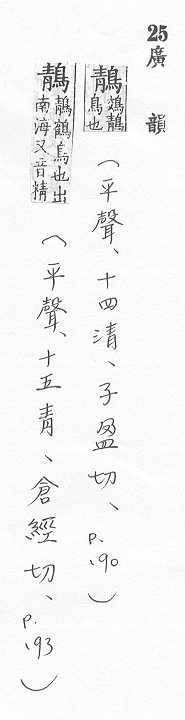 25 廣韻
鶄 鵁鶄鳥也（平聲、十四清、子盈切、p.190）
鶄 鶄鶴鳥也出南海又音精（平聲、十五青、倉經切、p.193）